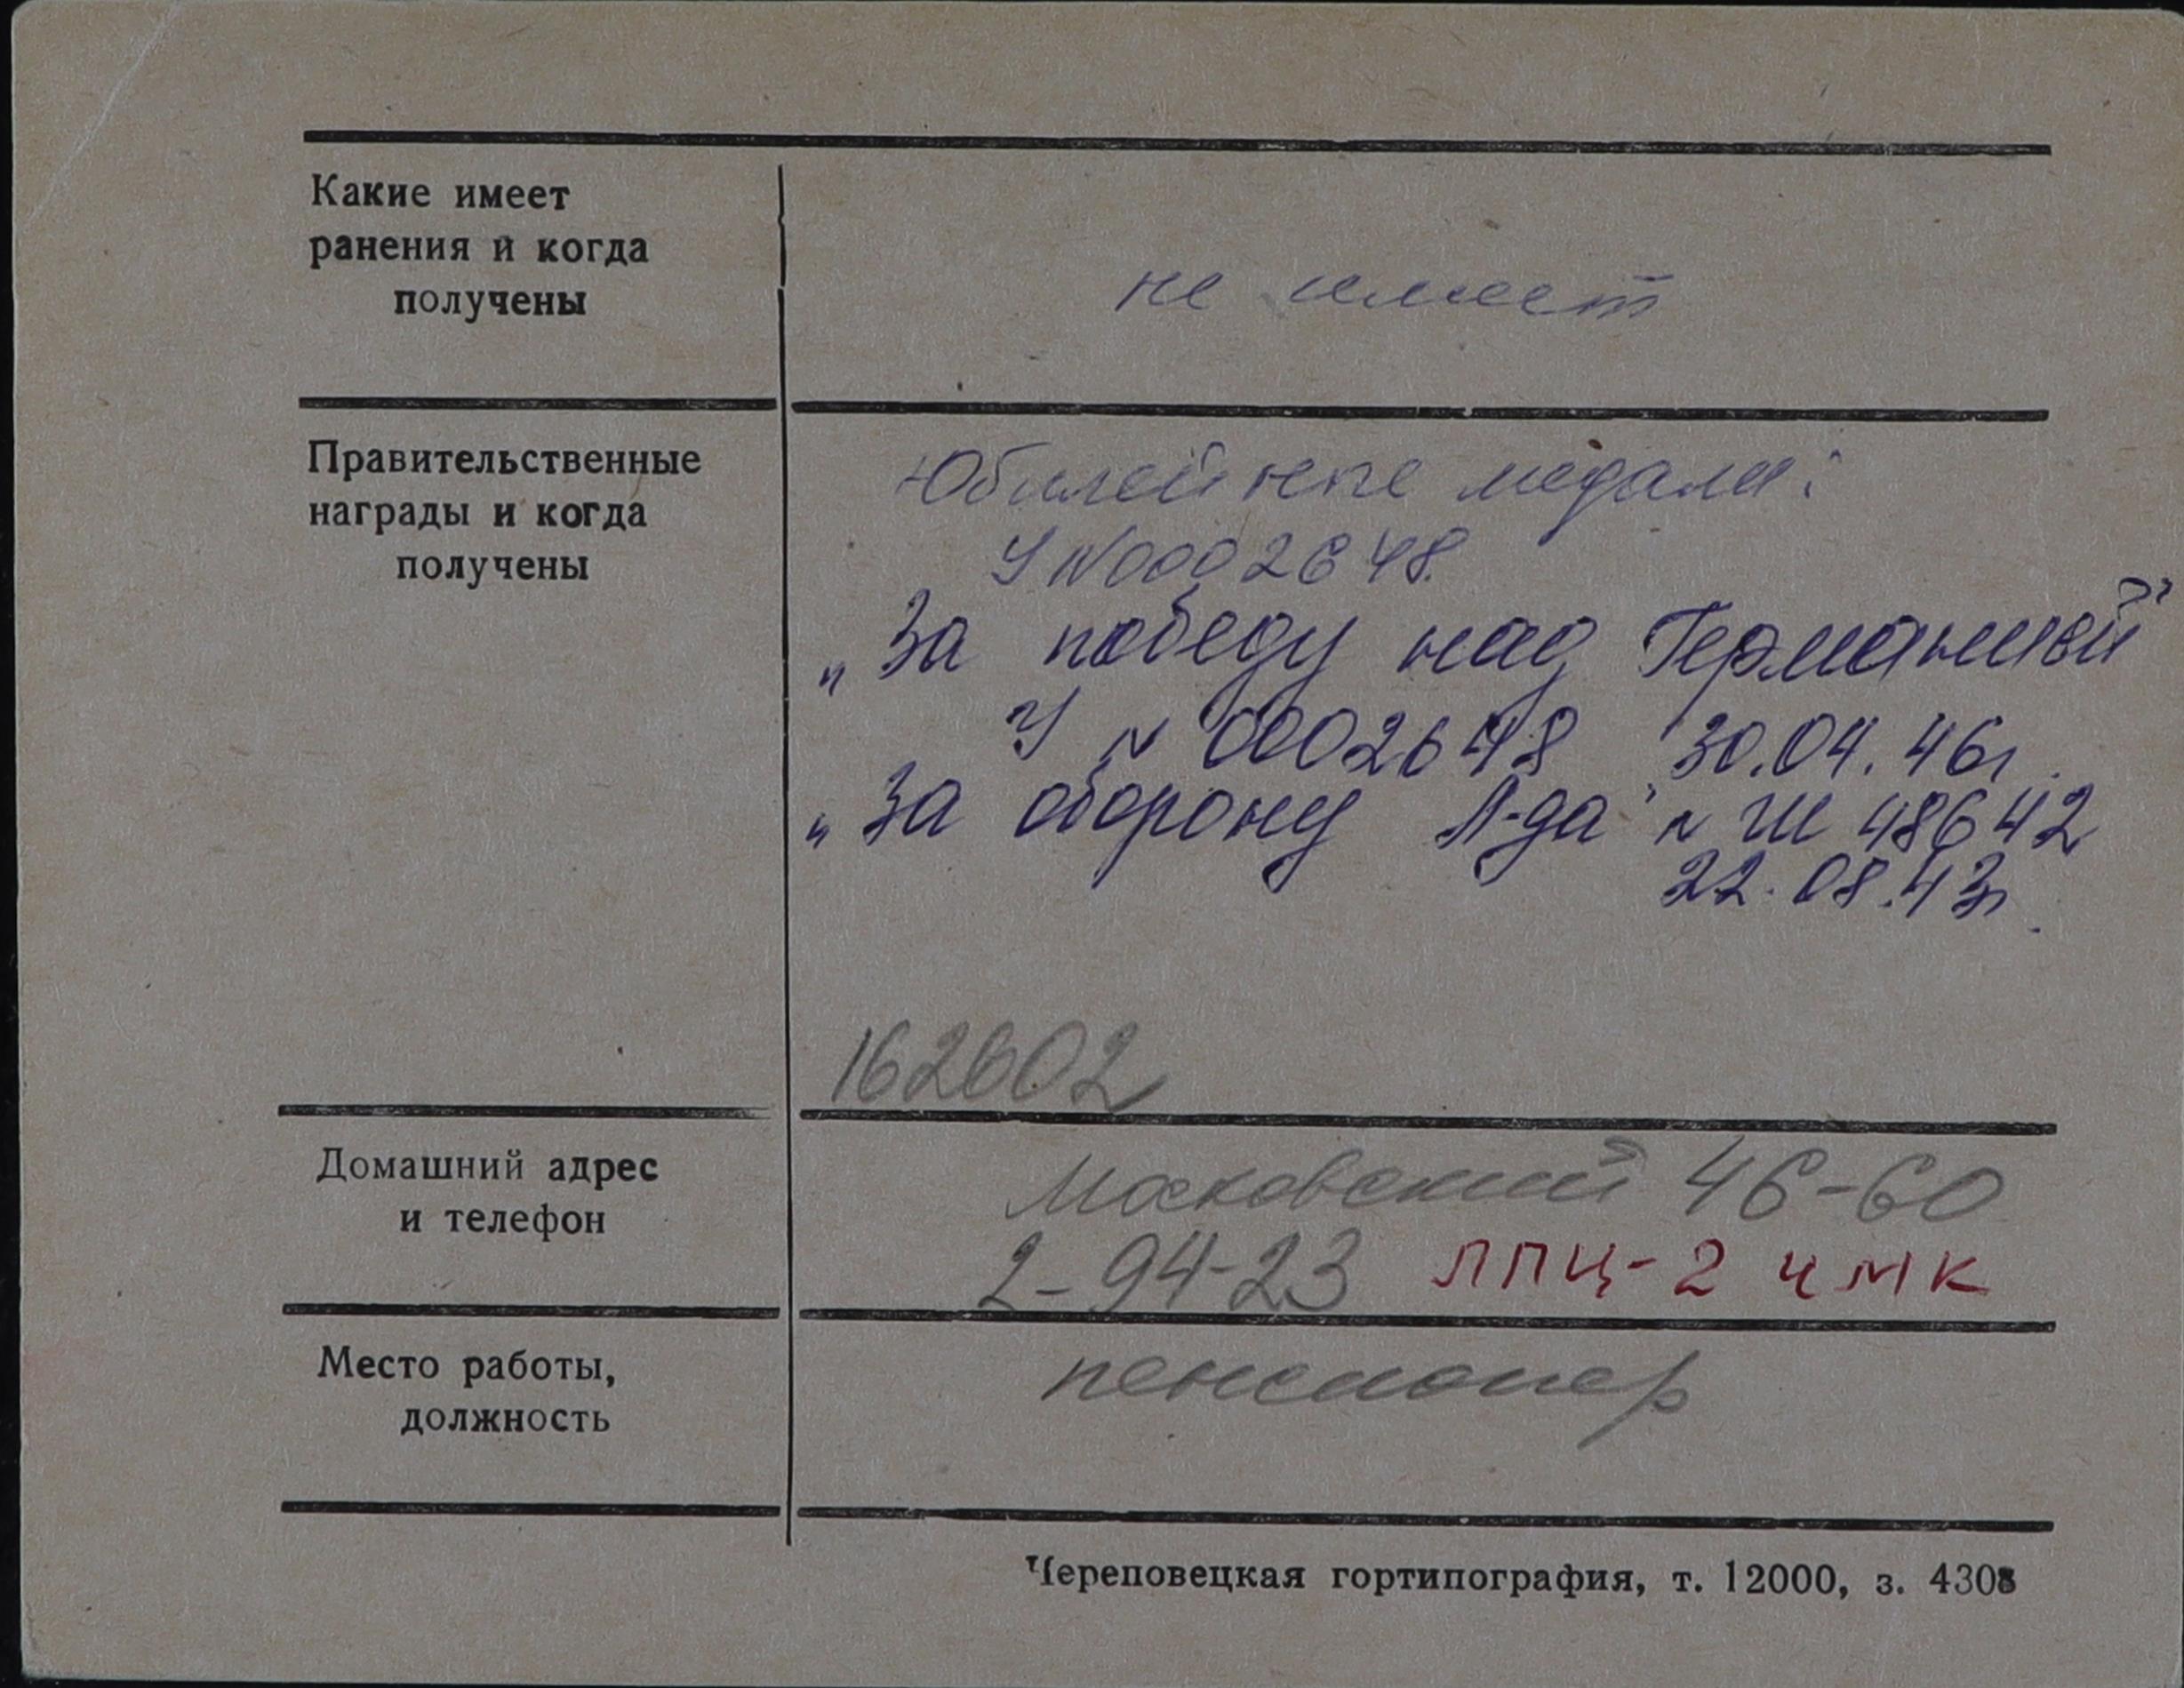 Какие имеет
ранения и когда
получены
не имеет
Правительственные
награды и когда
получены
Юбилейные медали:
У N0002648
„За победу над Германией"
У N 0002648 30.04.46г.
„За оборону Л-да" N Ш 48642
22.08.43г.
162602
Домашний адрес
и телефон
Московский 46-60
2-94-23 ЛПЦ-2 ЧМК
Место работы,
должность
пенсионер
Череповецкая гортипография, т. 12000, з. 4308